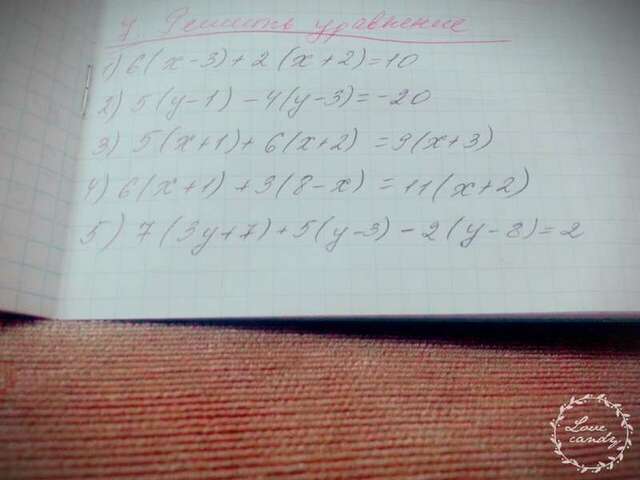 7. Решить уравнение
1) 6(x-3)+2(x+2)=10
2) 5(y-1)-4(y-3)=-20
3) 5(x+1)+6(x+2)=9(x+3)
4) 6(x+1)+9(8-x)=11(x+2)
5) 7(3y+7)+5(y-3)-2(y-8)=2
Love
candy